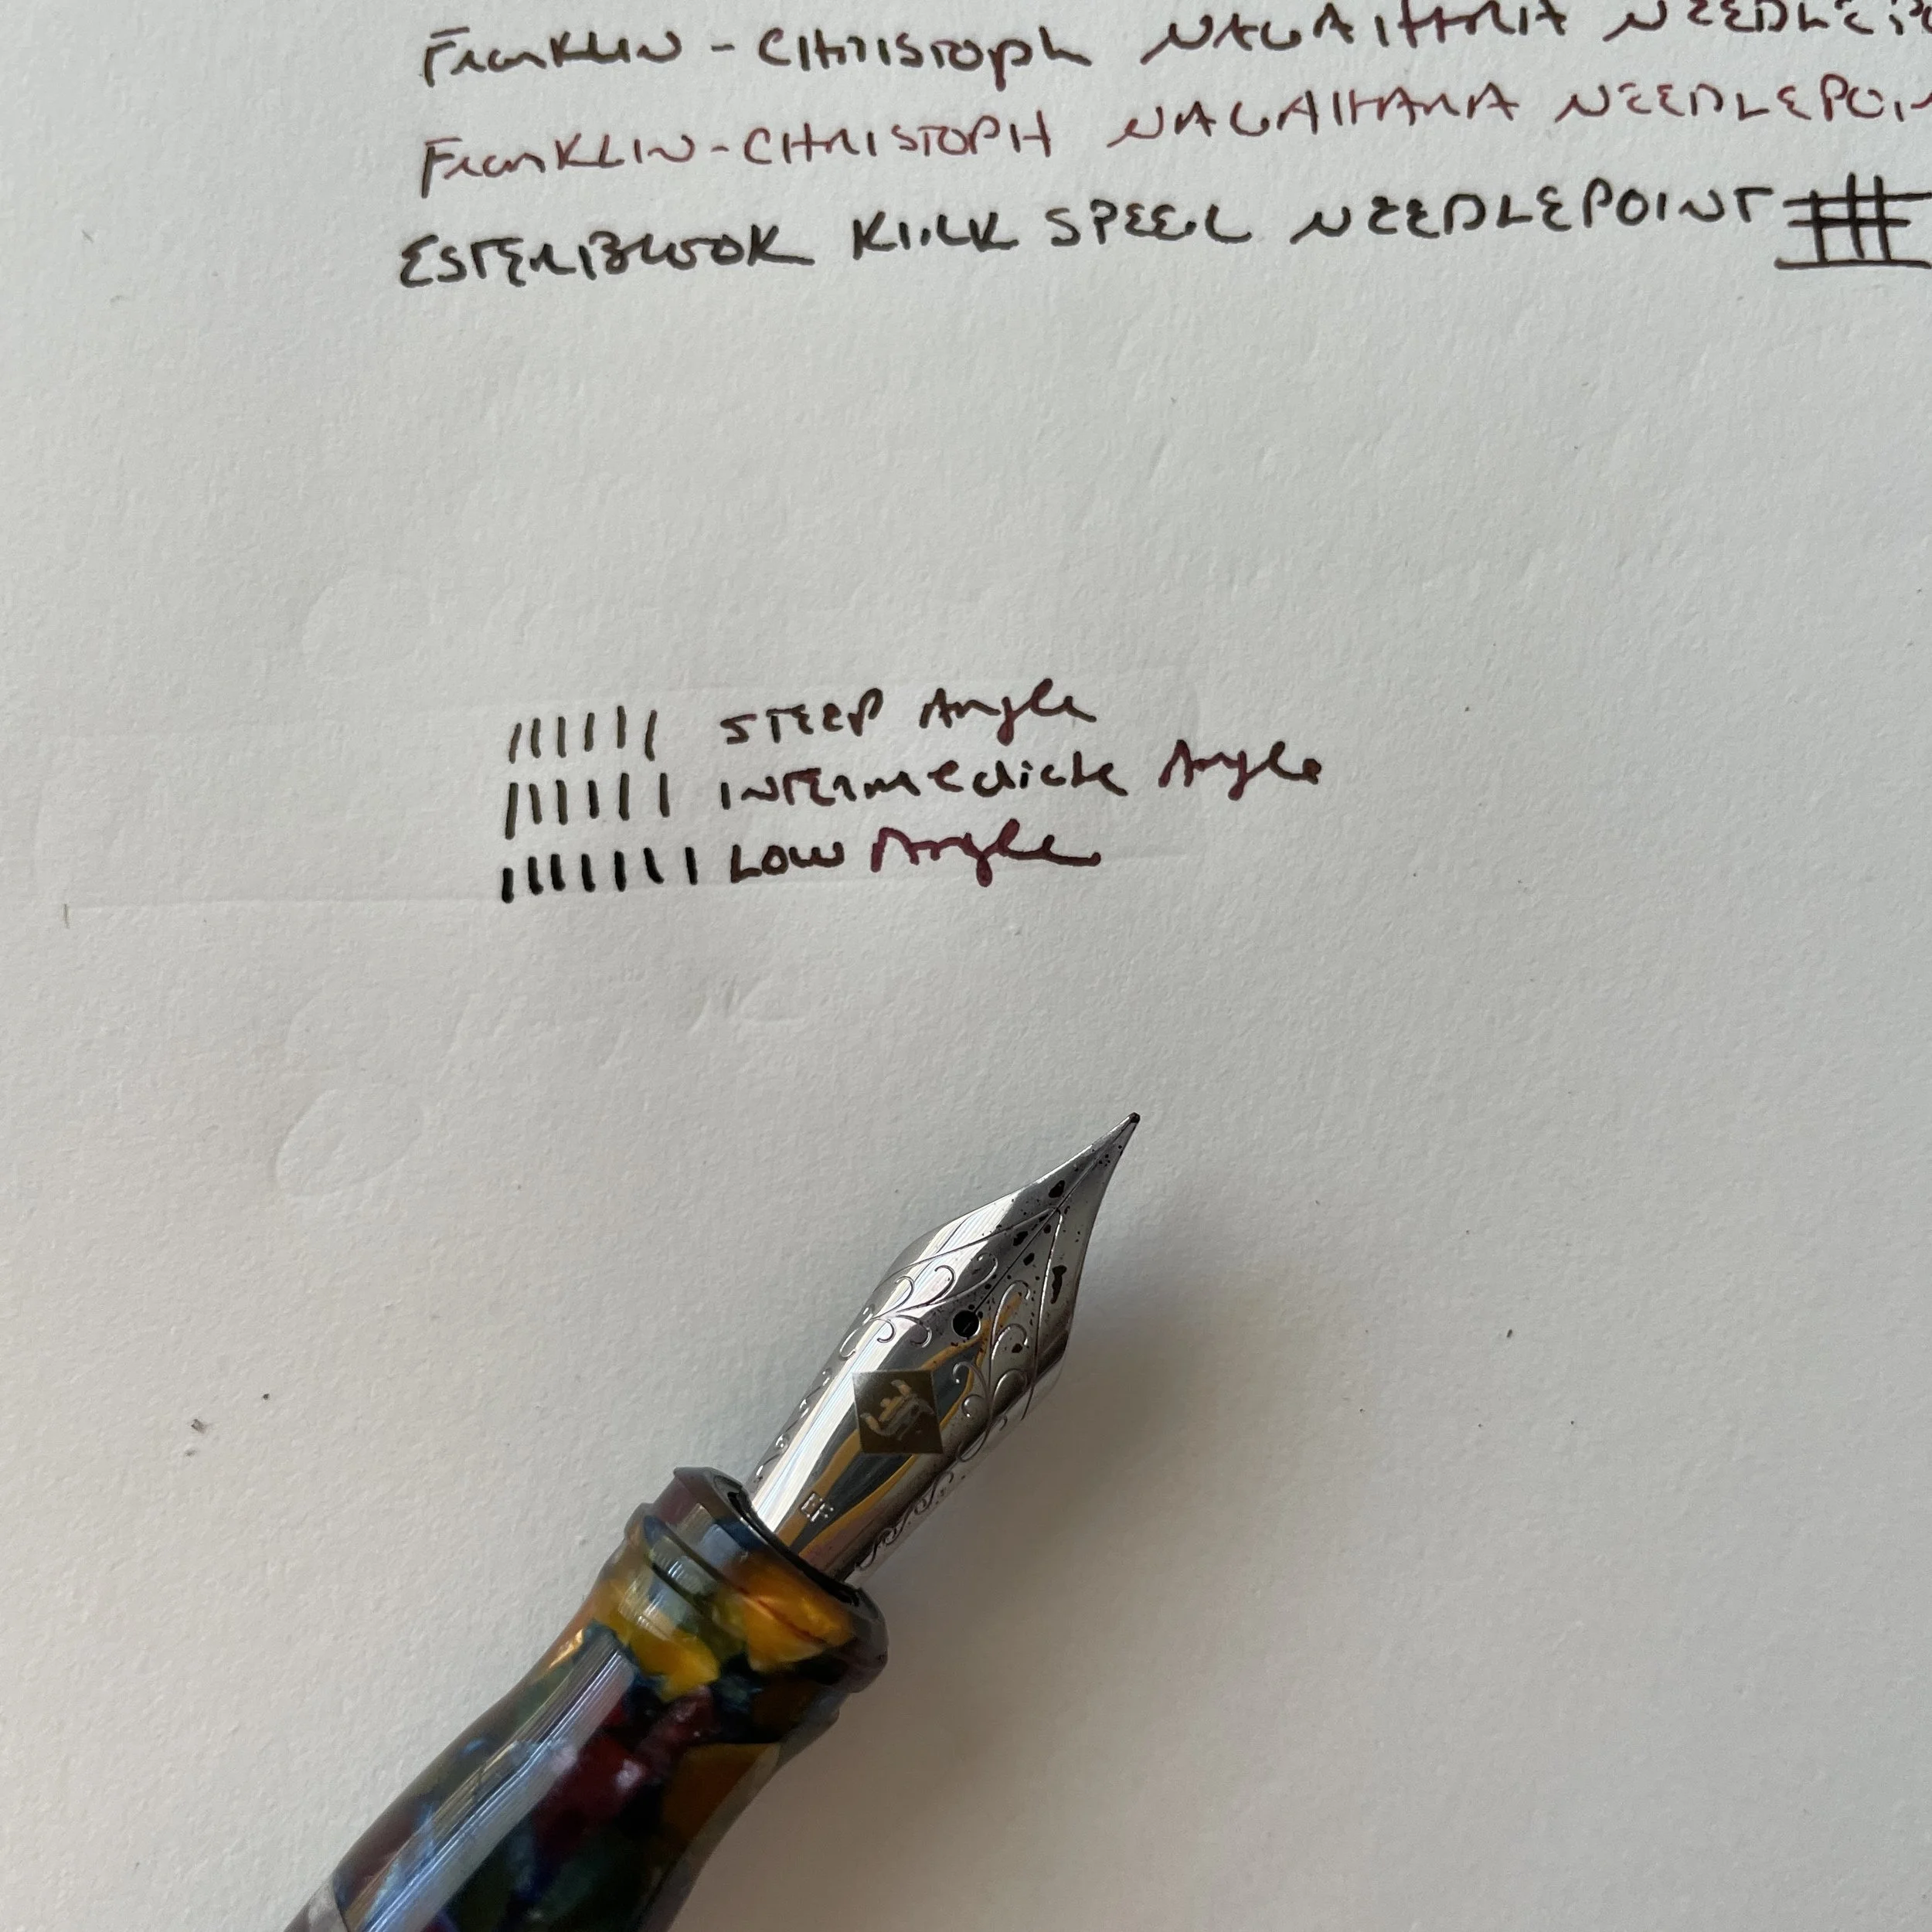 Franklin - Christoph NAGAHARA NEEDLEP
Franklin-CHRISTOPH NAGAHARA NEEDLEPOIN
ESTERBROOK KIRK SPEER NEEDLEPOINT
STEEP Angle
INTERmediate Angle
Low Angle
EF